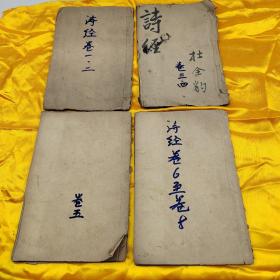 诗经卷一·二
詩經
卷三四
杜金豹
卷五
诗经卷6至卷8